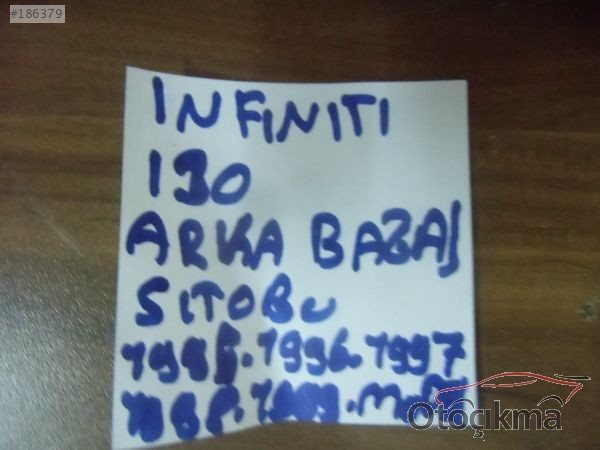 #186379
INFINITI
I30
ARKA BAGAJ
SITOBU
1995.1996.1997
1998.1999.
Otoçıkma